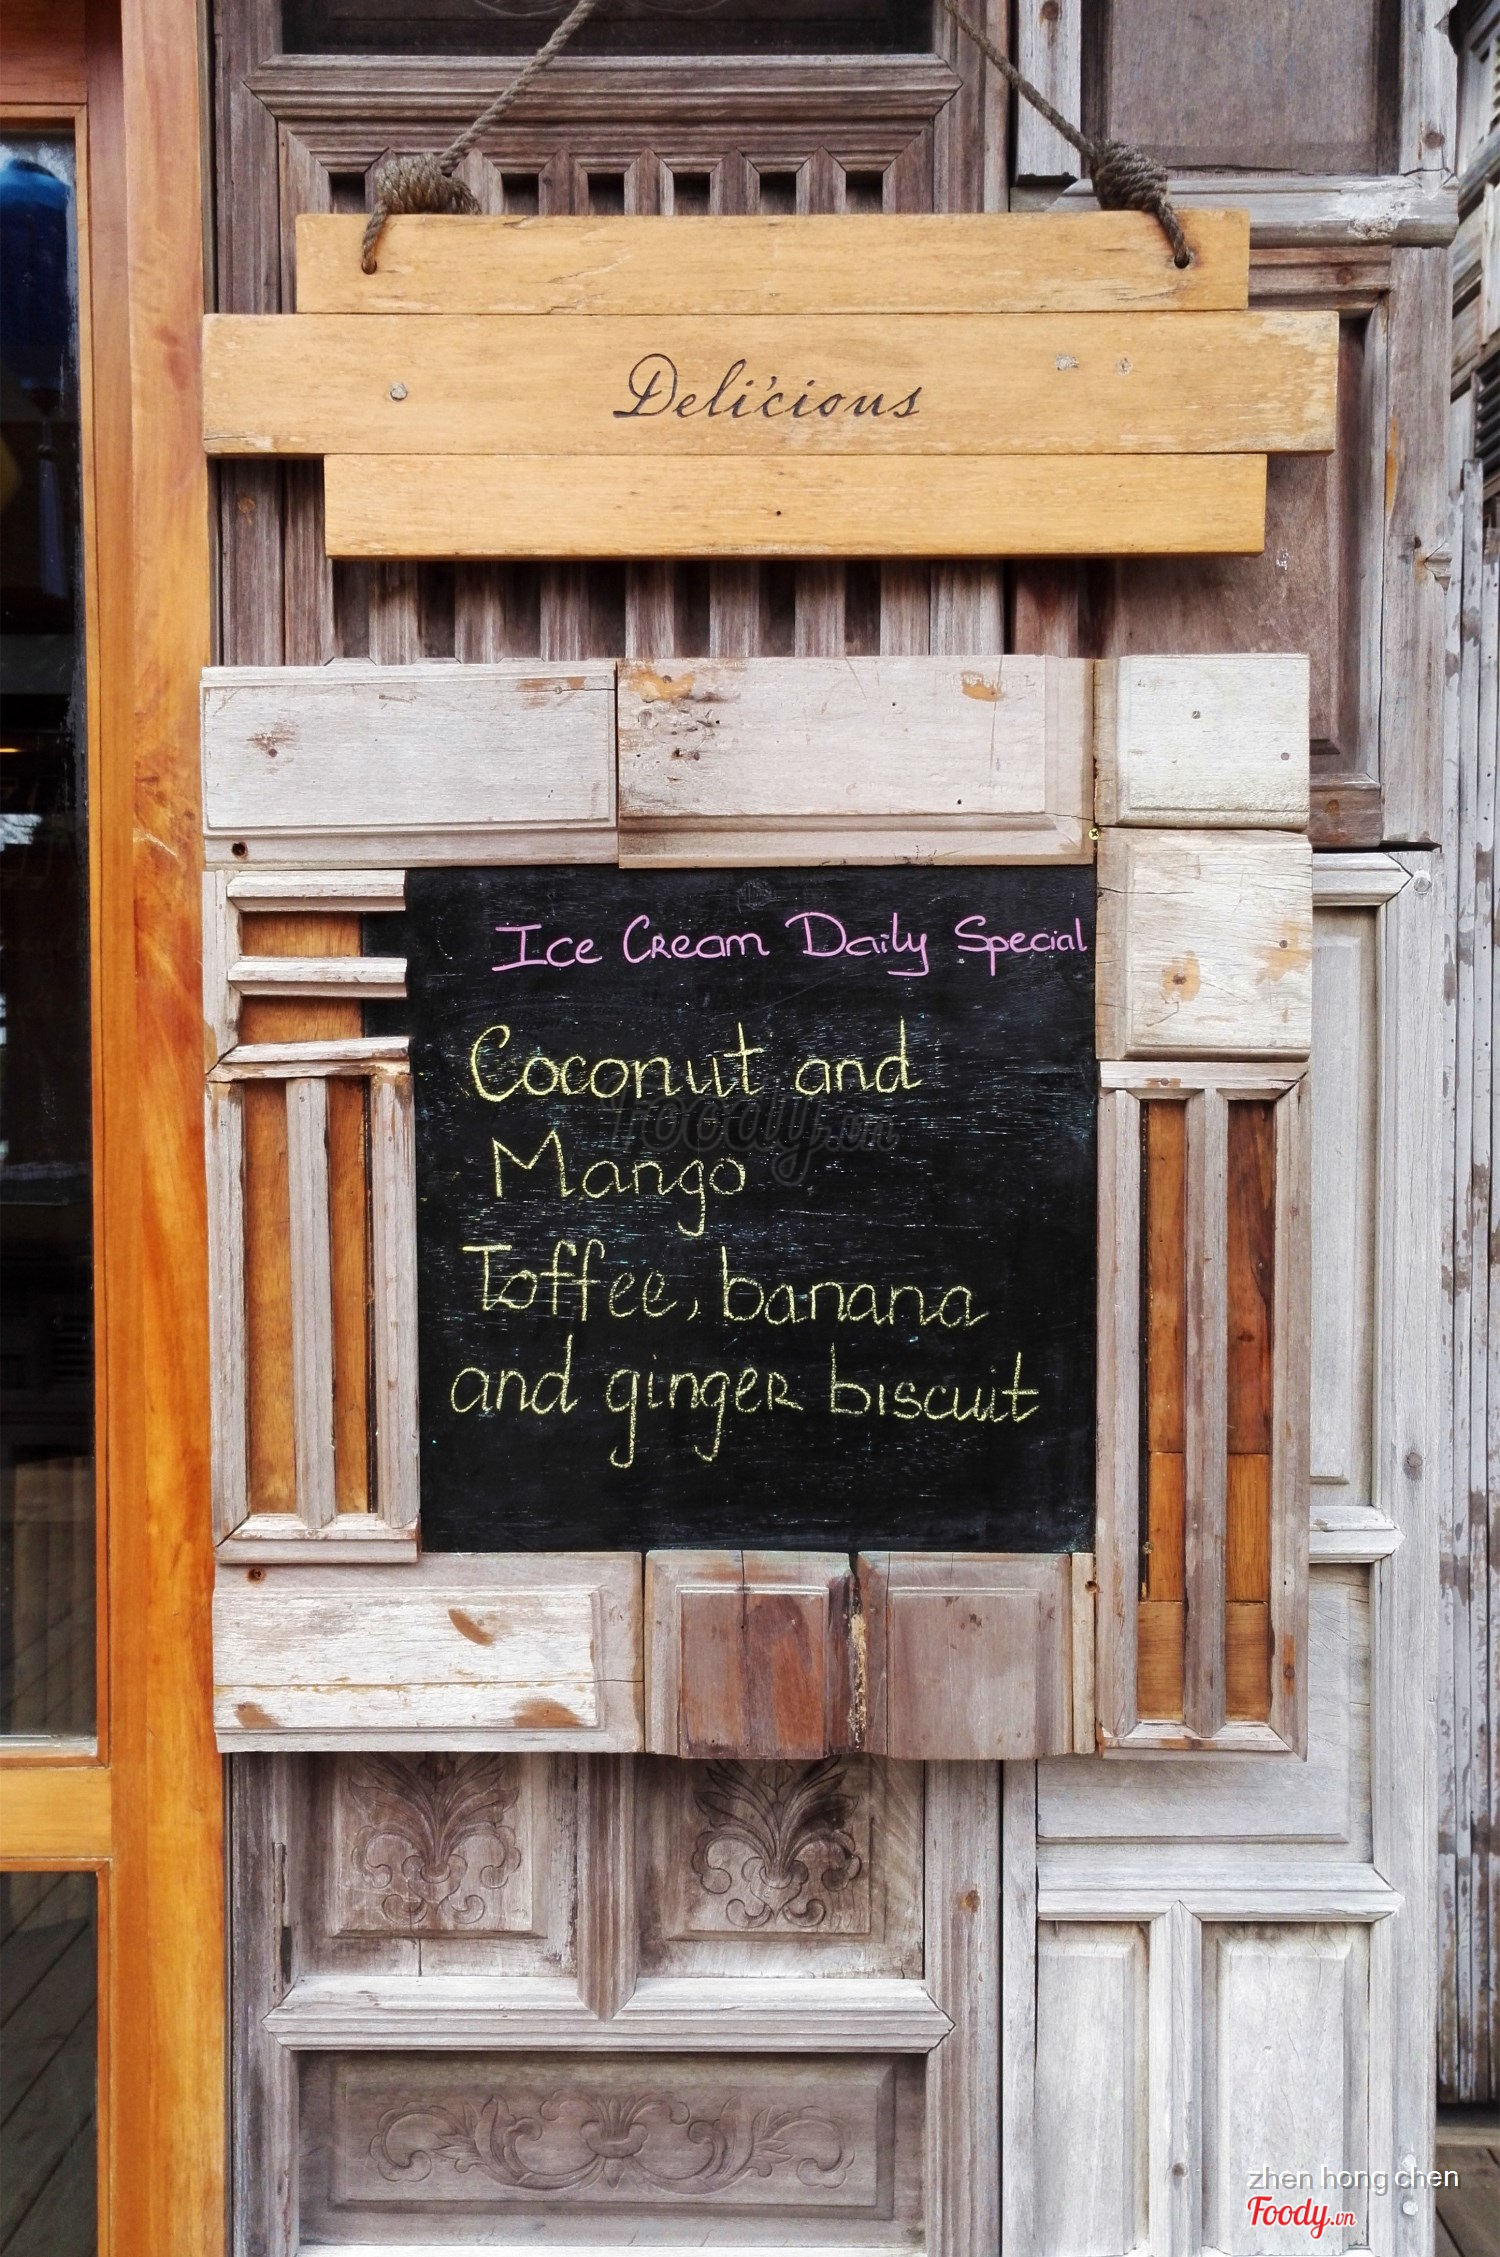 Deli'cious
Ice Cream Daily Special
Coconut and
Foody.vn
Mango
Toffee, banana
and ginger biscuit
zhen hong chen
Foody.vn